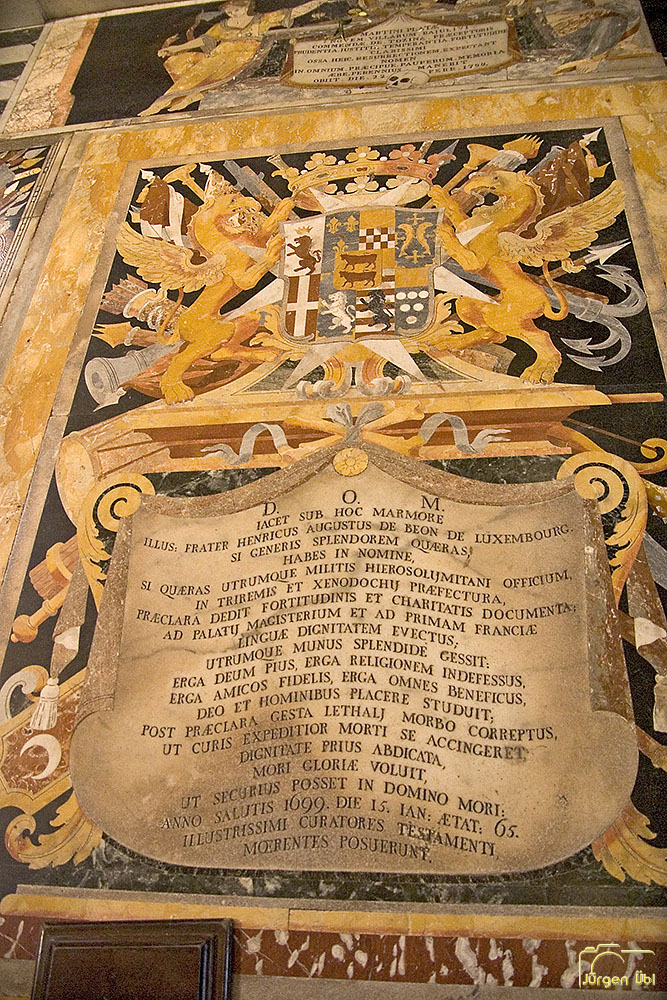 MARTINI
COMMENDÆ DE TOZINA
PRUDENTIA JUSTITI TEMPERANT
CLARISSIMUM EXPECTANT
NOMEN
OSSA HEIC
IN OMNIUM, PRÆCIPUE PAUPERUM, MEMORIA
ÆRE PERENNIUS
OBIIT DIE 22
D. O. M.
IACET SUB HOC MARMORE
ILLUS: FRATER HENRICUS AUGUSTUS DE BEON DE LUXEMBOURG.
SI GENERIS SPLENDOREM QUÆRAS,
HABES IN NOMINE,
SI QUÆRAS UTRUMQUE MILITIS HIEROSOLIJMITANI OFFICIUM,
IN TRIREMIS ET XENODOCHIJ PRÆFECTURA,
PRÆCLARA DEDIT FORTITUDINIS ET CHARITATIS DOCUMENTA;
AD PALATIJ MAGISTERIUM ET AD PRIMAM FRANCIÆ
LINGUÆ DIGNITATEM EVECTUS;
UTRUMQUE MUNUS SPLENDIDE GESSIT:
ERGA DEUM PIUS, ERGA RELIGIONEM INDEFESSUS,
ERGA AMICOS FIDELIS, ERGA OMNES BENEFICUS,
DEO ET HOMINIBUS PLACERE STUDUIT;
POST PRÆCLARA GESTA LETHALJ MORBO CORREPTUS,
UT CURIS EXPEDITIOR MORTI SE ACCINGERET
DIGNITATE PRIUS ABDICATA,
MORI GLORIÆ VOLUIT,
UT SECURIUS POSSET IN DOMINO MORI:
ANNO SALUTIS 1699. DIE 15. IAN: ÆTAT: 65.
ILLUSTRISSIMI CURATORES TESTAMENTI,
MŒRENTES POSUERUNT.
Jürgen Übl